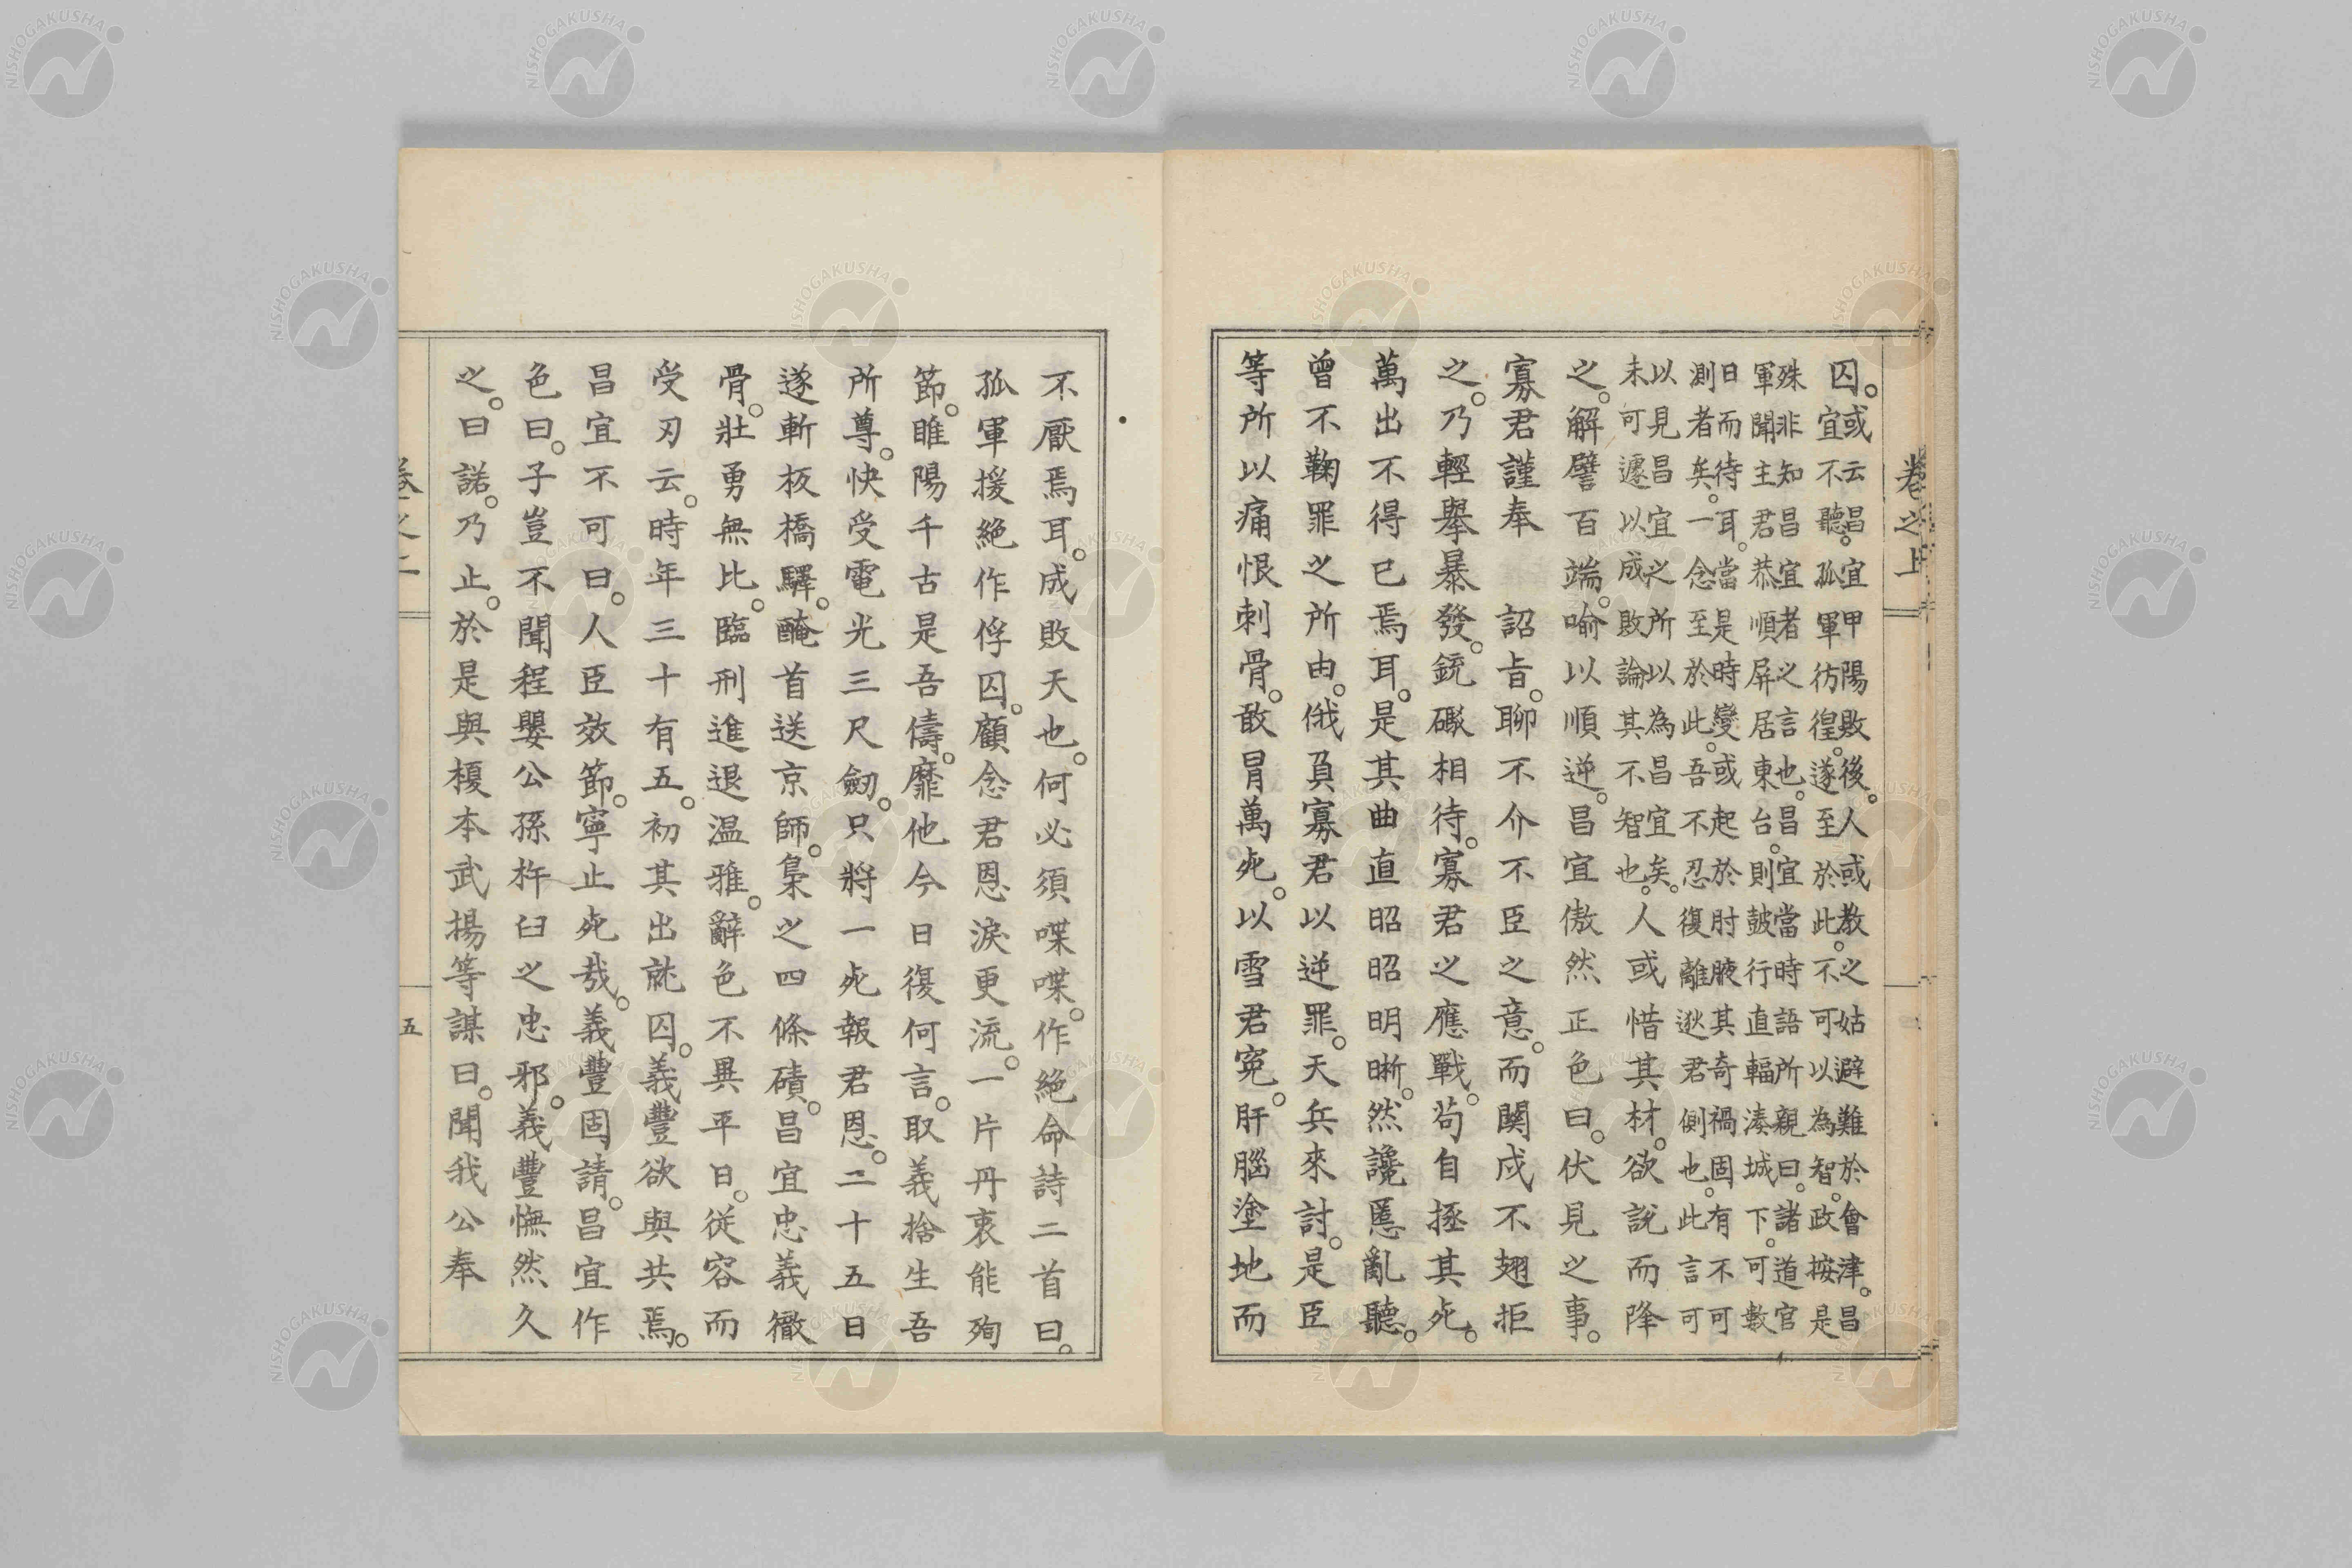 卷之上
囚。或云昌宜甲陽敗後。人或教之姑避難於會津。昌
宜不聽。孤軍彷徨。遂至於此。不可以為智。政按是
殊非知昌宜者之言也。昌宜當時語所親曰。諸道官
軍聞主君恭順屏居東台。則鼓行直輻湊城下。可數
日而待耳。當是時變或起於肘腋其奇禍固有不可
測者矣。一念至於此。吾不忍復離逖君側也。此言可
以見昌宜之所以為昌宜矣。
未可遽以成敗論其不智也。人或惜其材。欲說而降
之。解譬百端。喻以順逆。昌宜傲然正色曰。伏見之事。
寡君謹奉　詔旨。聊不介不臣之意。而関戍不翅拒
之。乃輕舉暴發。銃礮相待。寡君之應戰。苟自拯其死。
萬出不得已焉耳。是其曲直昭昭明晰。然讒慝亂聽。
曾不鞠罪之所由。俄負寡君以逆罪。天兵來討。是臣
等所以痛恨刺骨。敢冒萬死。以雪君寃。肝腦塗地而
不厭焉耳。成敗天也。何必須喋喋。作絕命詩二首曰。
孤軍援絕作俘囚。顧念君恩淚更流。一片丹衷能殉
節。睢陽千古是吾儔。靡他今日復何言。取義捨生吾
所尊。快受電光三尺劒。只將一死報君恩。二十五日
遂斬板橋驛。醃首送京師。梟之四條磧。昌宜忠義徹
骨。壯勇無比。臨刑進退溫雅。辭色不異平日。従容而
受刃云。時年三十有五。初其出就囚。義豐欲與共焉。
昌宜不可曰。人臣效節。寧止死哉。義豐固請。昌宜作
色曰。子豈不聞程嬰公孫杵臼之忠邪。義豐憮然久
之。曰諾。乃止。於是與榎本武揚等謀曰。聞我公奉
五
NISHOGAKUSHA